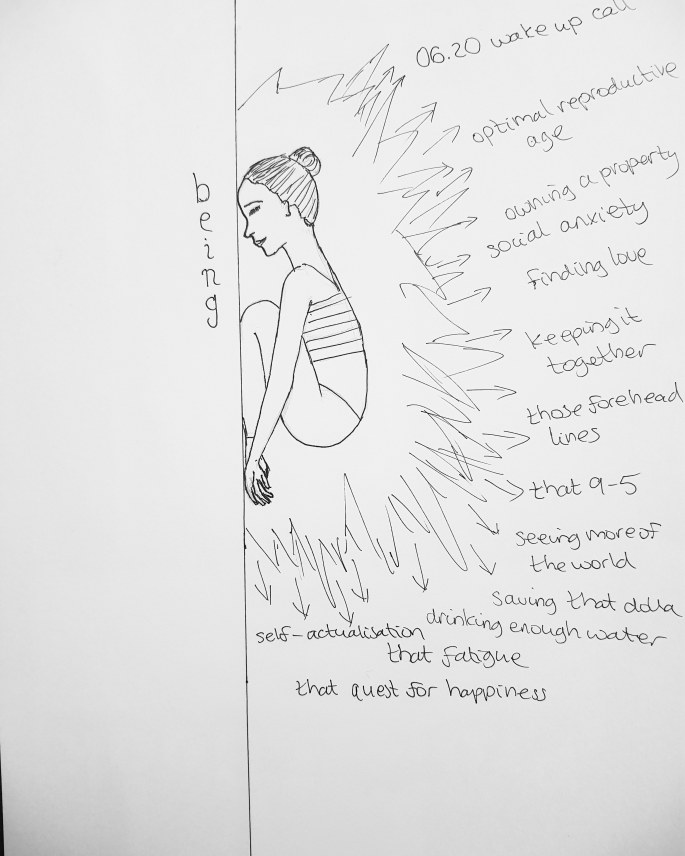 06.20 wake up call
optimal reproductive
age
owning a property
social anxiety
finding love
being
keeping it
together
those forehead
lines
that 9-5
seeing more of
the world
saving that dolla
drinking enough water
self-actualisation
that fatigue
that quest for happiness